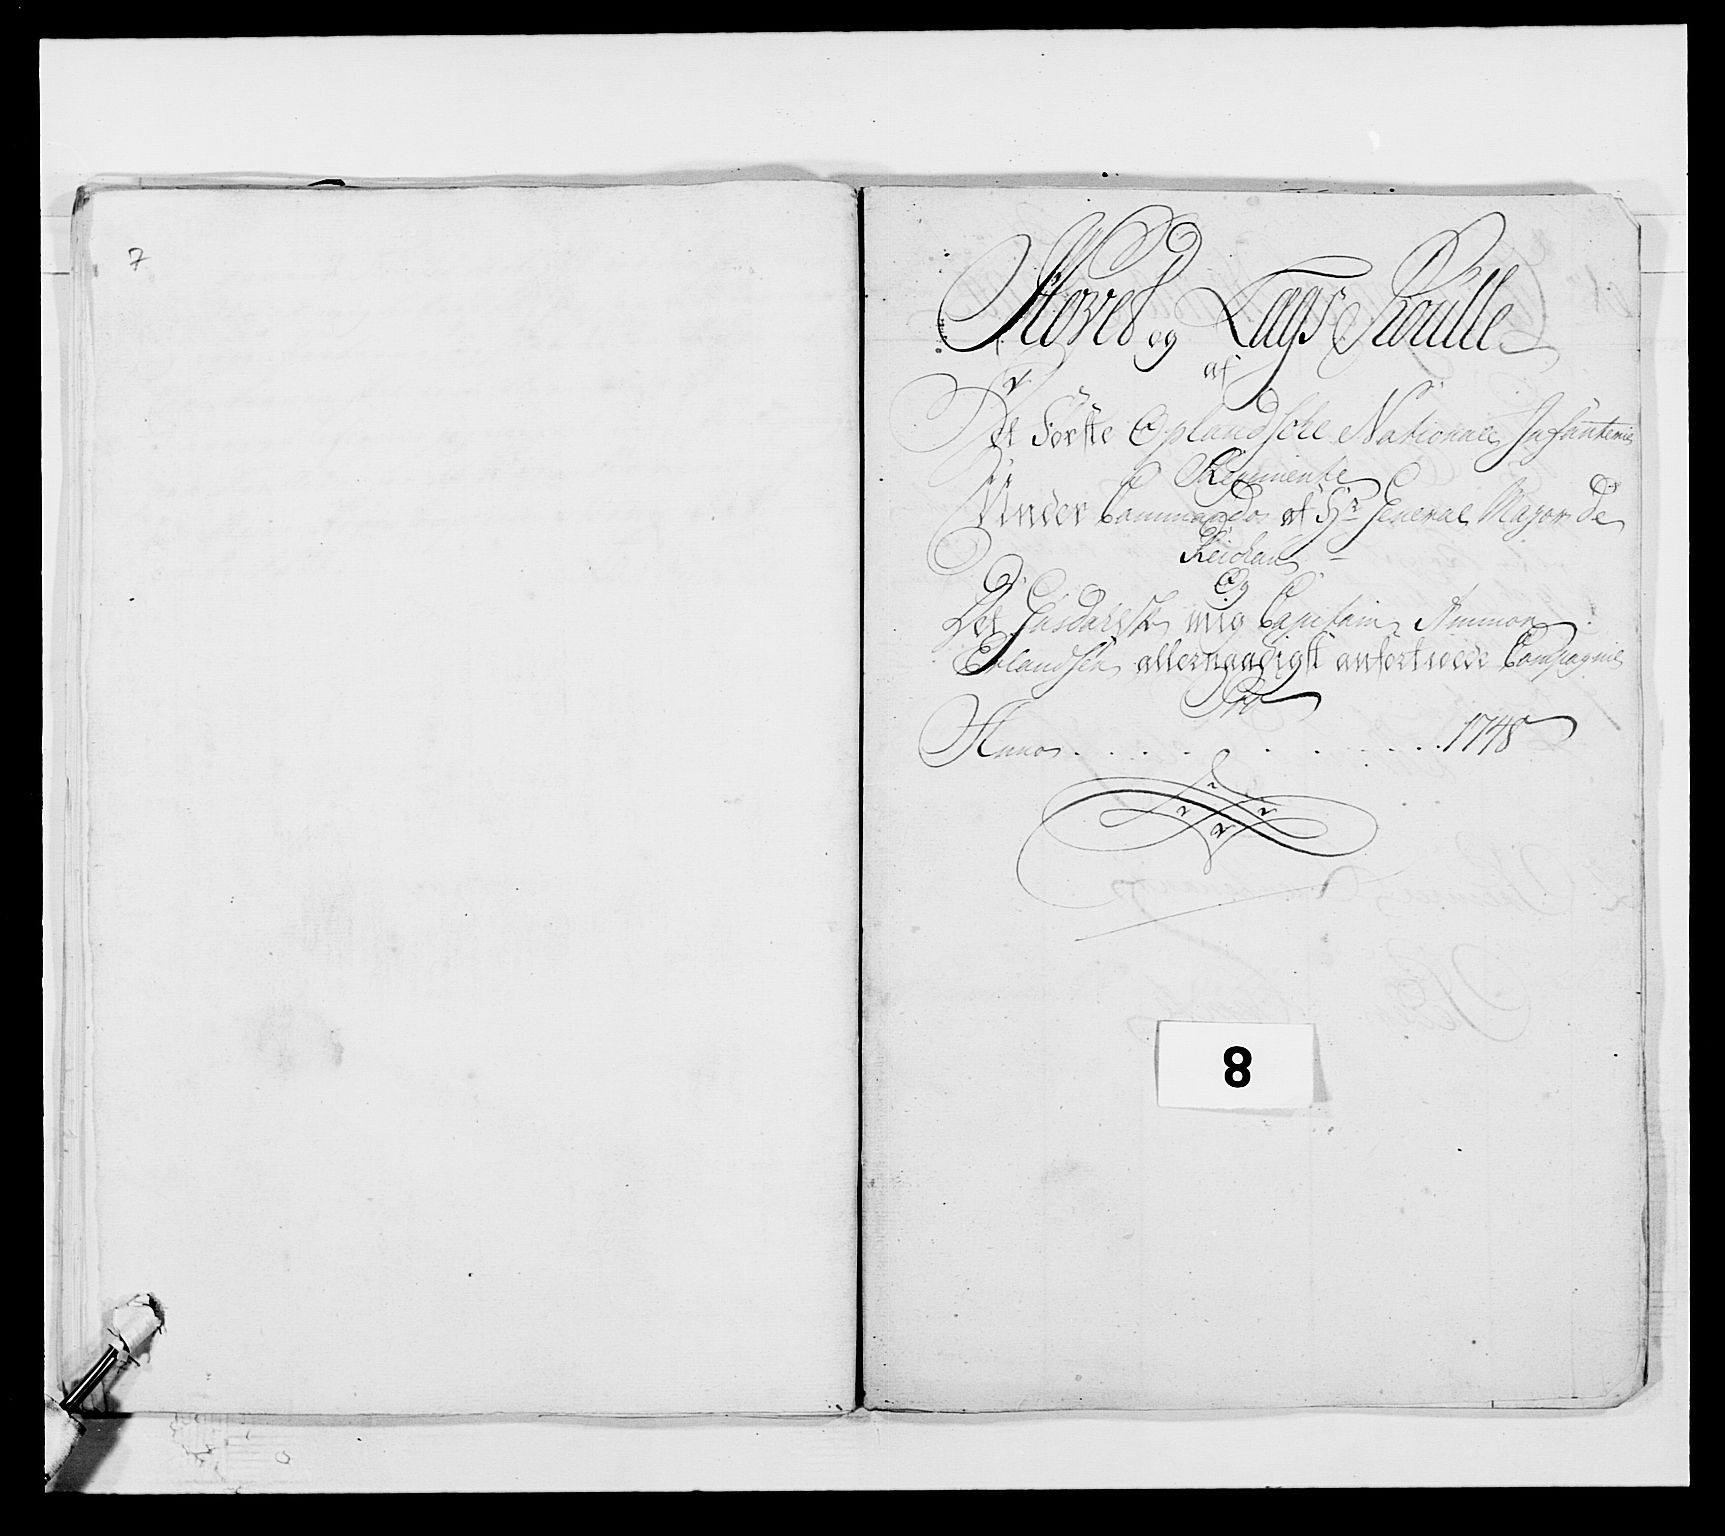 7
Hoved og Lags Roulle
af
Det Förste Oplandsche Nationale Infanterie
Regimente
Under Commando af Hr General Major de
Reichau
Og
Det mig Capitain Ammon
Erlandsen allernaadigst anfortroede Compagnie
Pro
Anno . . . . . . . . . . 1748
8